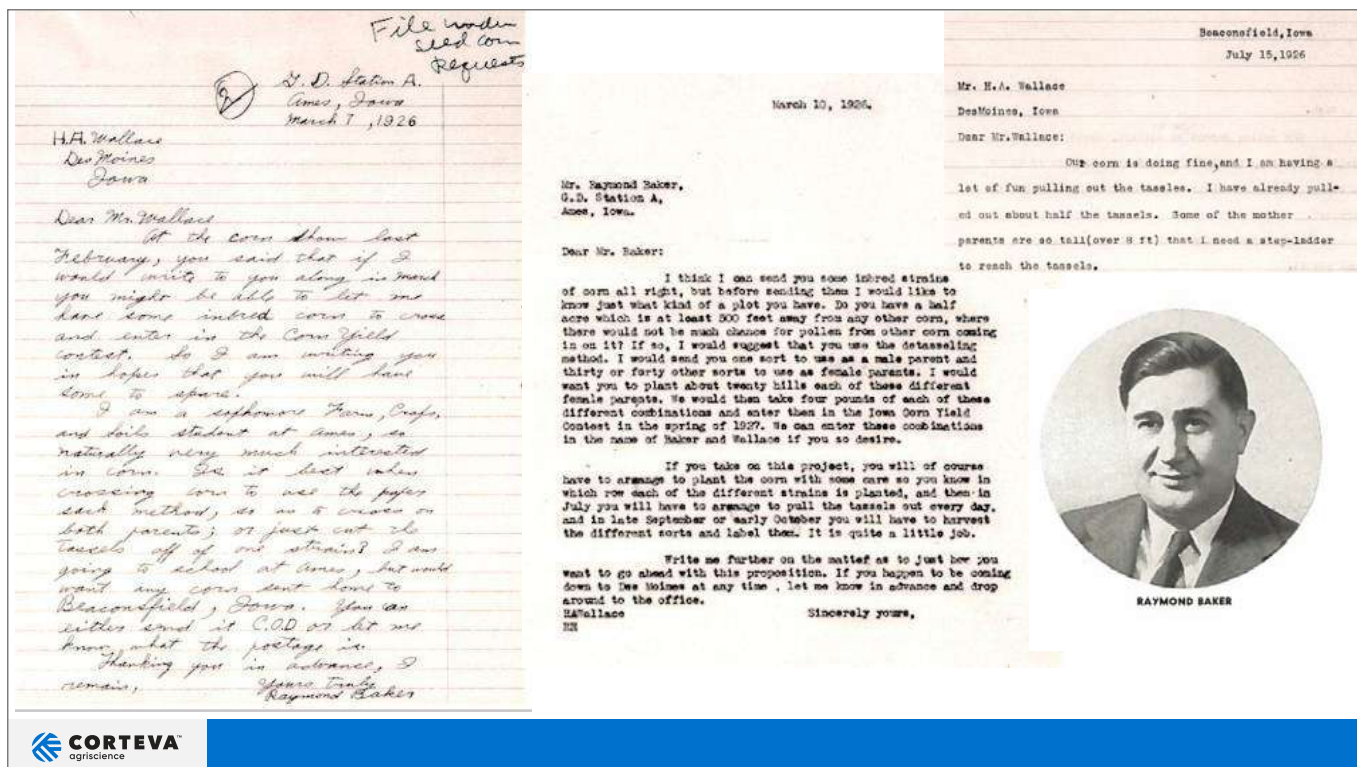 File under
seed corn
Requests
2
G. D. Station A.
Ames, Iowa
March 7, 1926
H.A. Wallace
Des Moines
Iowa
Dear Mr. Wallace
At the corn show last
February, you said that if I
would write to you along in March
you might be able to let me
have some inbred corn to cross
and enter in the Corn Yield
contest. So I am writing you
in hopes that you will have
some to spare.
I am a sophomore Farm, Crops,
and Soils student at Ames, so
naturally very much interested
in corn. Is it best when
crossing corn to use the paper
sack method, so as to cross on
both parents; or just cut the
tassels off of one strain? I am
going to school at Ames, but would
want any corn sent home to
Beaconsfield, Iowa. You can
either send it C.O.D or let me
know what the postage is.
Thanking you in advance, I
remain,
Yours truly
Raymond Baker
March 10, 1926.
Mr. Raymond Baker,
G.D. Station A,
Ames, Iowa.
Dear Mr. Baker:
I think I can send you some inbred strains
of corn all right, but before sending them I would like to
know just what kind of a plot you have. Do you have a half
acre which is at least 500 feet away from any other corn, where
there would not be much chance for pollen from other corn coming
in on it? If so, I would suggest that you use the detasseling
method. I would send you one sort to use as a male parent and
thirty or forty other sorts to use as female parents. I would
want you to plant about twenty hills each of these different
female parents. We would then take four pounds of each of these
different combinations and enter them in the Iowa Corn Yield
Contest in the spring of 1927. We can enter these combinations
in the name of Baker and Wallace if you so desire.
If you take on this project, you will of course
have to arrange to plant the corn with some care so you know in
which row each of the different strains is planted, and then in
July you will have to arrange to pull the tassels out every day,
and in late September or early October you will have to harvest
the different sorts and label them. It is quite a little job.
Write me further on the matter as to just how you
want to go ahead with this proposition. If you happen to be coming
down to Des Moines at any time , let me know in advance and drop
around to the office.
HAWallace Sincerely yours,
Beaconsfield,Iowa
July 15,1926
Mr. H.A. Wallace
DesMoines, Iowa
Dear Mr.Wallace:
Our corn is doing fine,and I am having a
lot of fun pulling out the tassles. I have already pull-
ed out about half the tassels. Some of the mother
parents are so tall(over 8 ft) that I need a step-ladder
to reach the tassels.
RAYMOND BAKER
CORTEVA™
agriscience